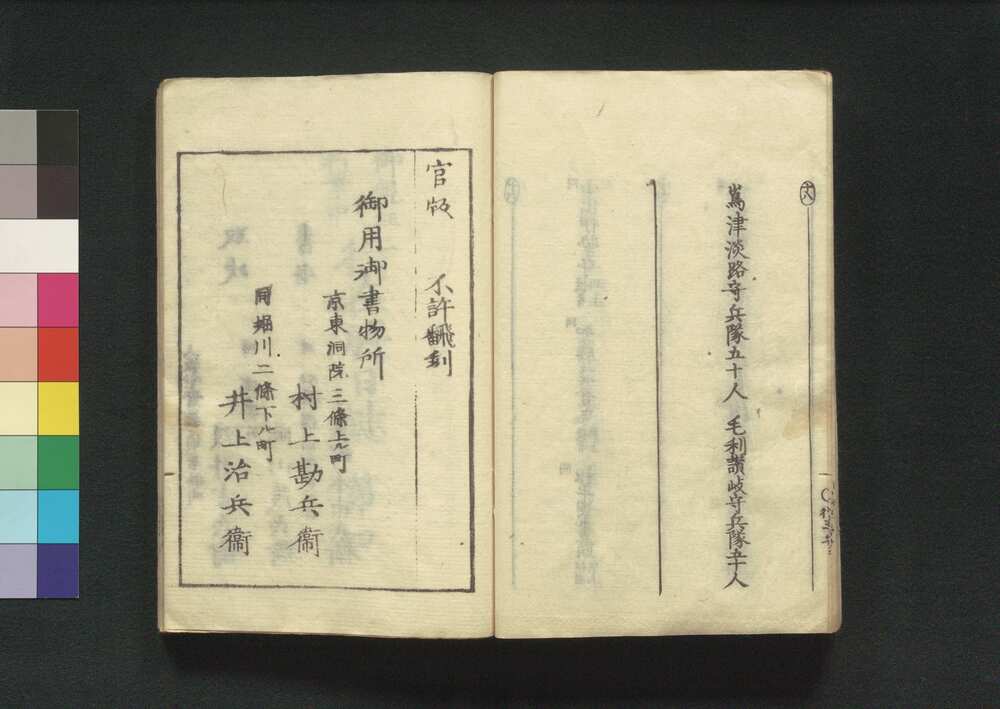 十八
嶌津淡路守兵隊五十人 毛利讃岐守兵隊五十人
官版 不許飜刻
御用御書物所
京東洞院三條上ル町
村上勘兵衞
同堀川二條下ル町
井上治兵衞